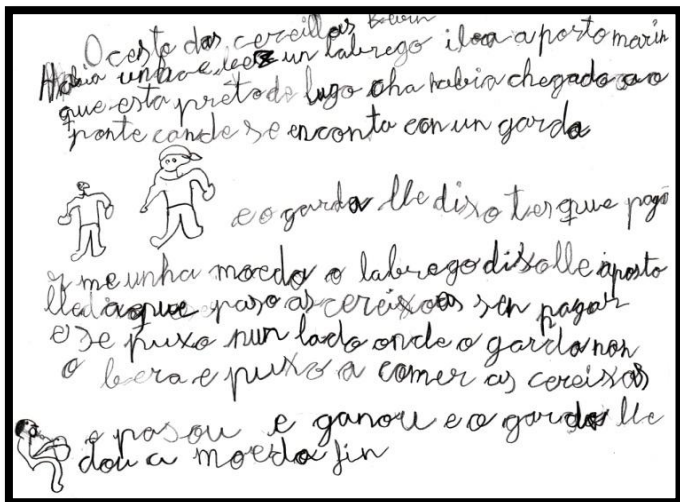 O cesto das cereillas
Habia unha un labrego iba a porto marin
que esta preto de lugo cha habia chegado ao
ponte cande se enconta con un garda
e o garda lle dixo tes que pagá
r me unha moeda o labrego dixolle aposto
lle a que paso as cereixas sen pagar
e se puxo nun lado onde o garda non
o bera e puxo a comer as cereixas
e pasou e ganou e o garda lle
dou a moeda fin